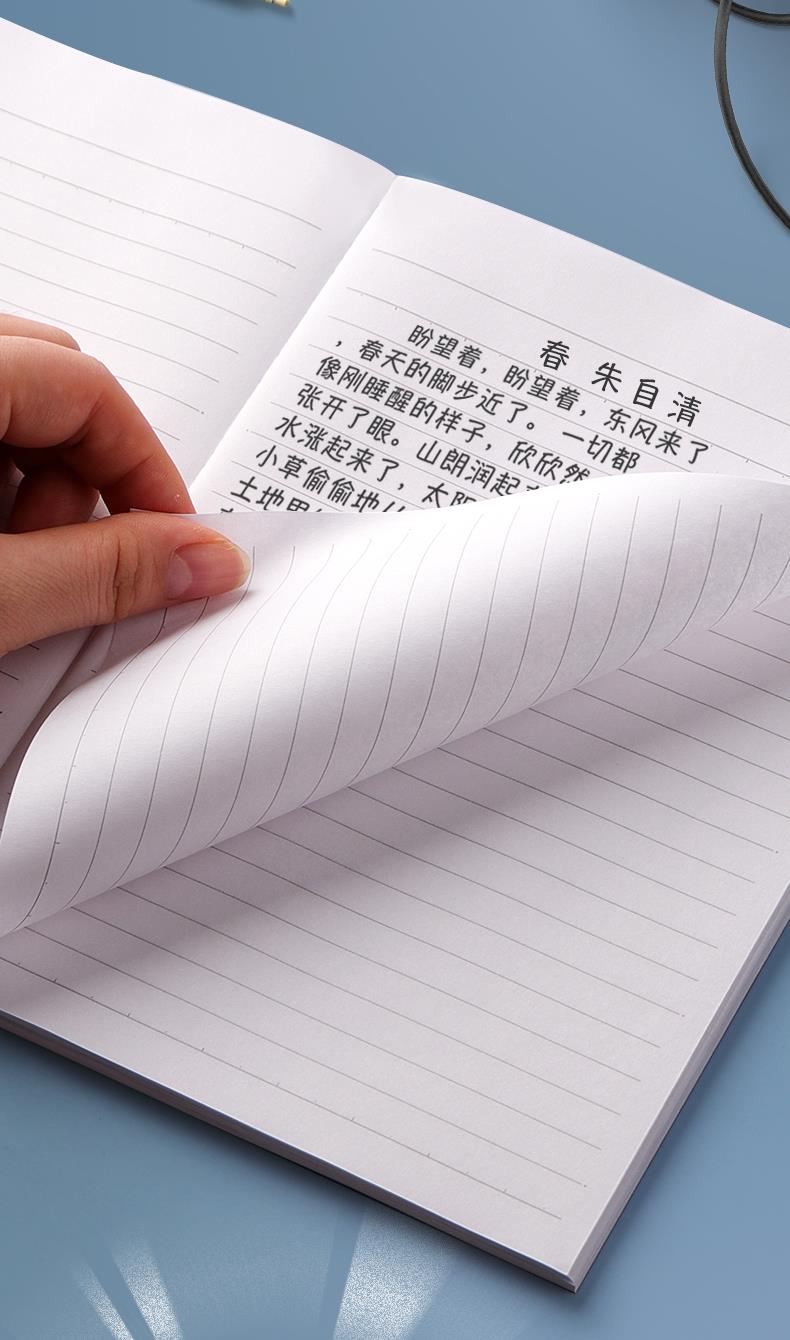 春 朱自清
盼望着，盼望着，东风来了
，春天的脚步近了。 一切都
像刚睡醒的样子，欣欣然
张开了眼。山朗润起来
水涨起来了，太阳
小草偷偷地从
土地里